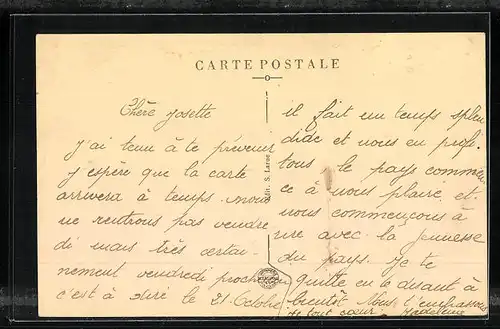 CARTE POSTALE
Chère Josette
J'ai tenu à te prévenir
j'espère que la carte
arrivera à temps. nous
ne rentrons pas vendre
di mais très certai-
nement vendredi prochain
c'est à dire le 21 Octobre
Edit. S. Laroe
il fait un temps splen
dide et nous en profi-
tons, le pays commen
ce à nous plaire et.
nous commençons à
rire avec la jeunesse
du pays. Je te
quitte en te disant à
bientôt Nous t'embrassons
de tout cœur. Madeleine